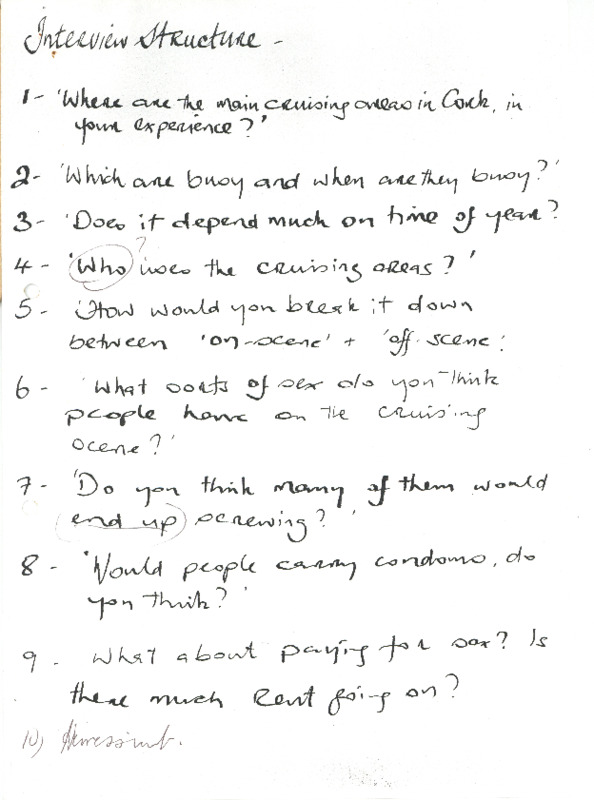 Interview Structure -
1- 'Where are the main cruising areas in Cork, in
your experience?'
2- 'Which are buoy and when are they busy?'
3- 'Does it depend much on time of year?
?
4- 'Who uses the cruising areas?'
5- 'How would you break it down
between 'on-scene' + 'off-scene'
6- 'What sorts of sex do you think
people have on the cruising
scene?'
7- 'Do you think many of them would
end up screwing?'
8- 'Would people carry condoms, do
you think?'
9- What about paying for sex? Is
there much rent going on?
10)